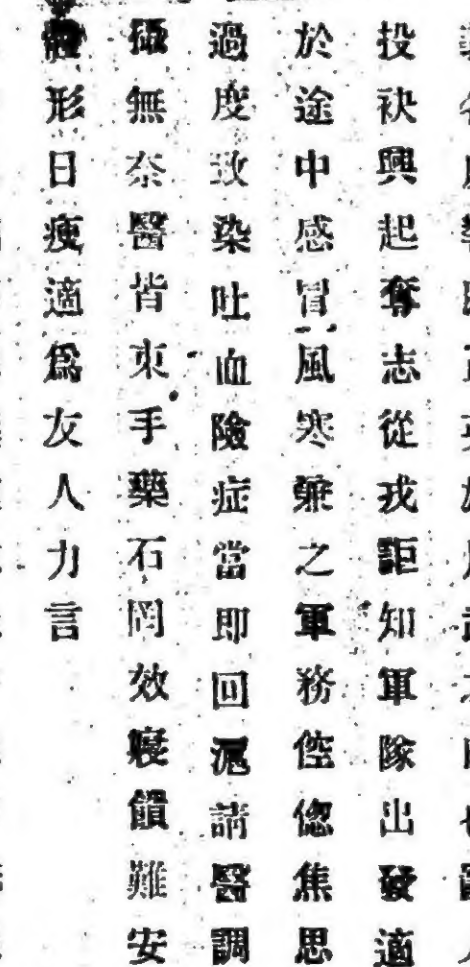 投袂興起奪志從戎詎知軍隊出發適
於途中感冒風寒兼之軍務倥偬焦思
過度致染吐血險症當即回滬請醫調
無奈醫皆束手藥石罔效寢饋難安
體形日瘦適爲友人力言